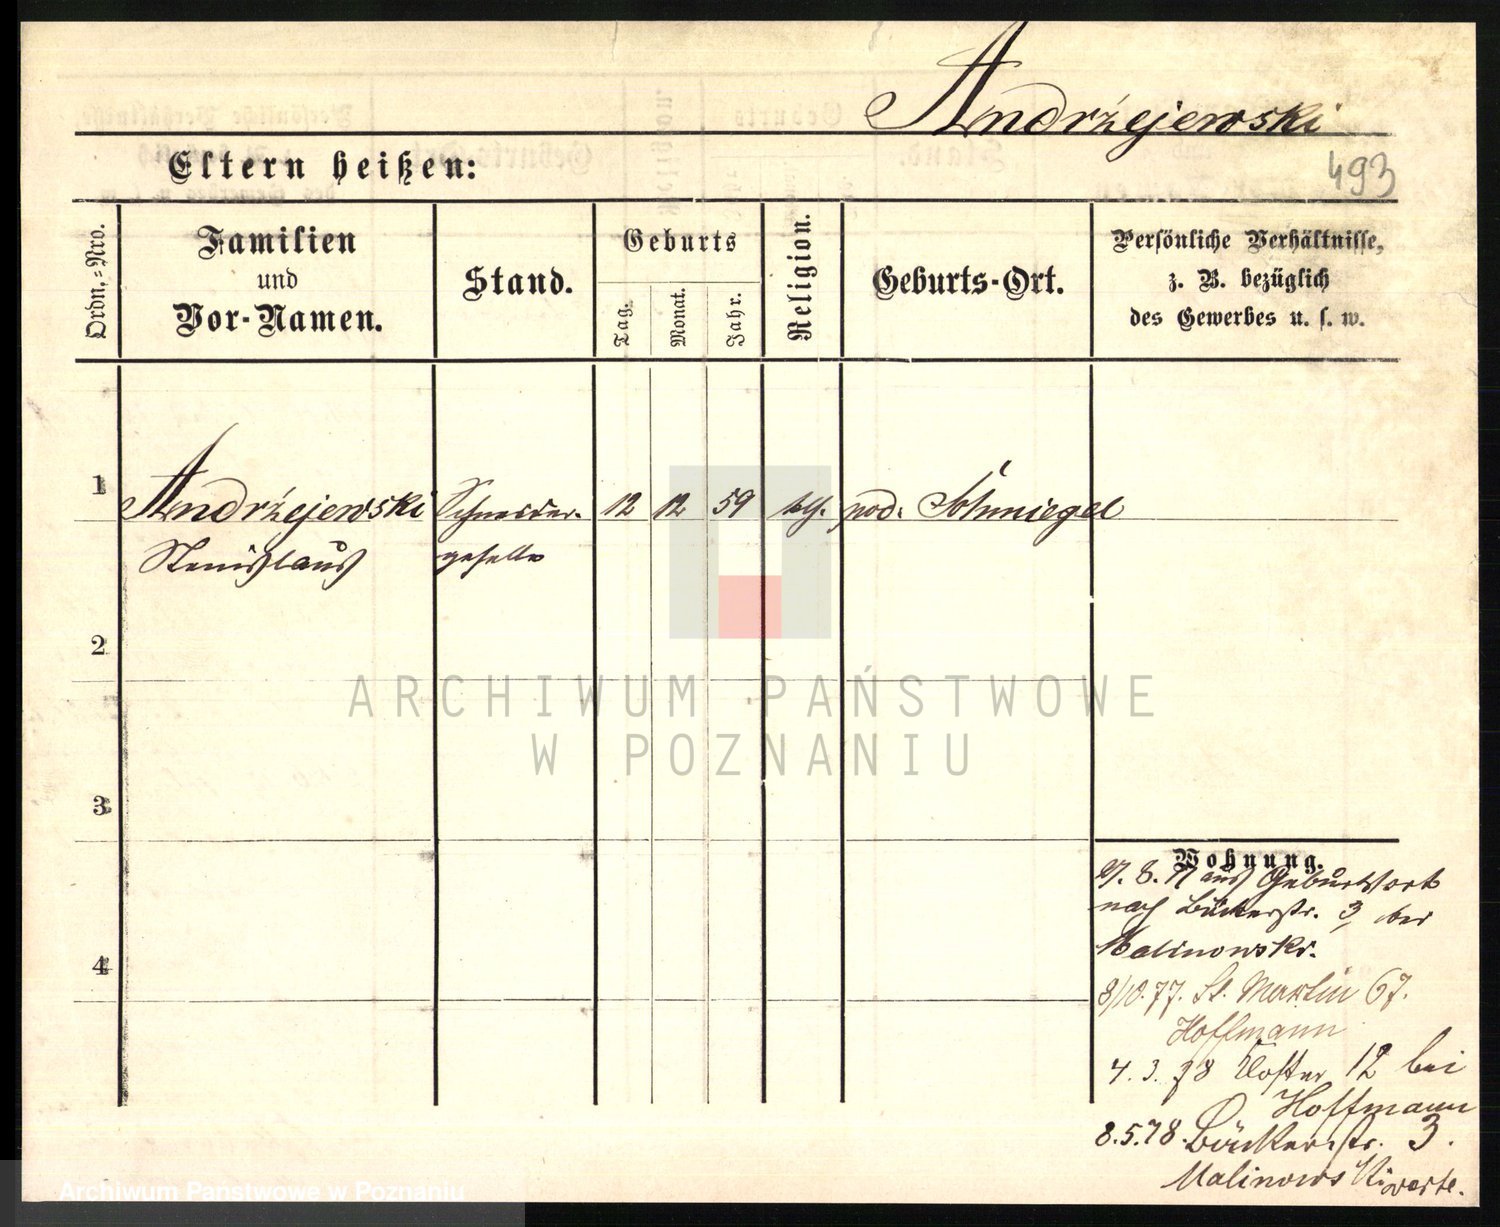 Andrźejewski
Eltern heißen:
493
Ordn.-Nro.
Familien
und
Vor-Namen.
Stand.
Geburts
Tag.
Monat.
Jahr.
Religion.
Geburts-Ort.
Persönliche Verhältnisse,
z. B. bezüglich
des Gewerbes u. s. w.
1
Andrźejewski Schneider- 12 12 59 kth. Schmiegel
Stanislaus geselle
2
ARCHIWUM PAŃSTWOWE
W POZNANIU
3
Wohnung.
27. 8. 77 aus Geburtsort
nach Bäckerstr. 3, bei
Malinowski.
4
8/10. 77. St. Martin 67.
Hoffmann
4. 3. 78 Kloster 12 bei
Hoffmann
8.5.78. Bäckerstr. 3.
Malinowski
Archiwum Państwowe w Poznaniu